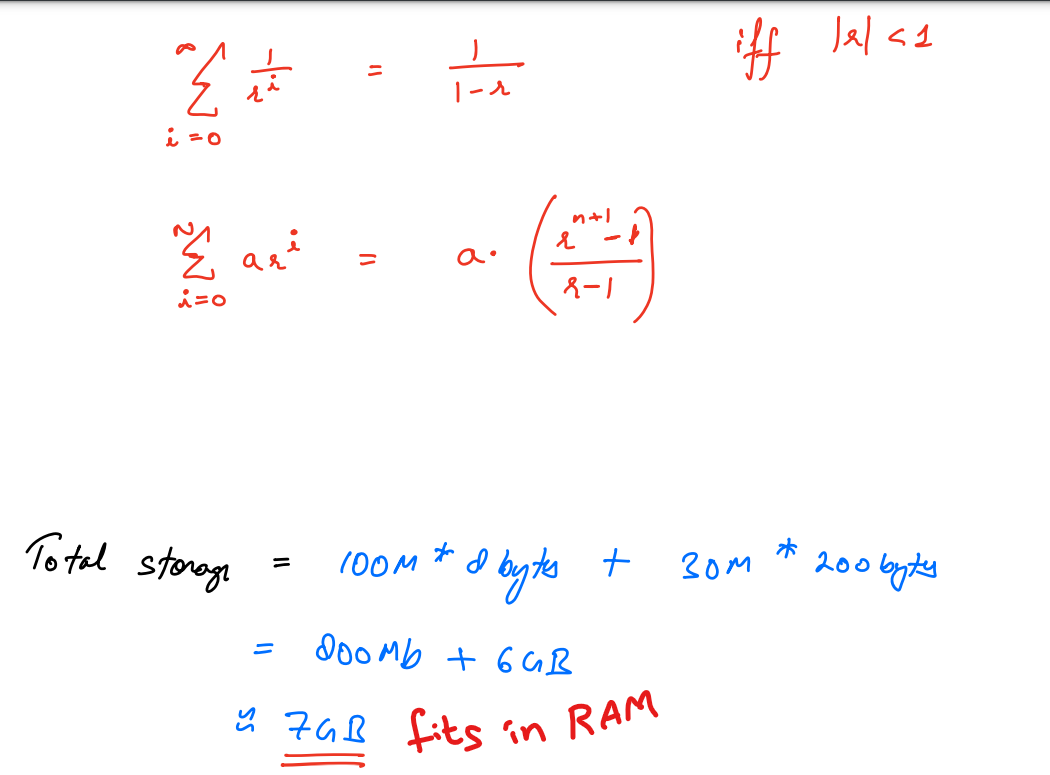 ∞ ∑ i=0 1/r^i = 1/(1-r) iff |r| < 1
n ∑ i=0 a r^i = a. ((r^(n+1) - 1)/(r-1))
Total storage = 100M * 8 bytes + 30M * 200 bytes
= 800Mb + 6GB
≈ 7GB fits in RAM